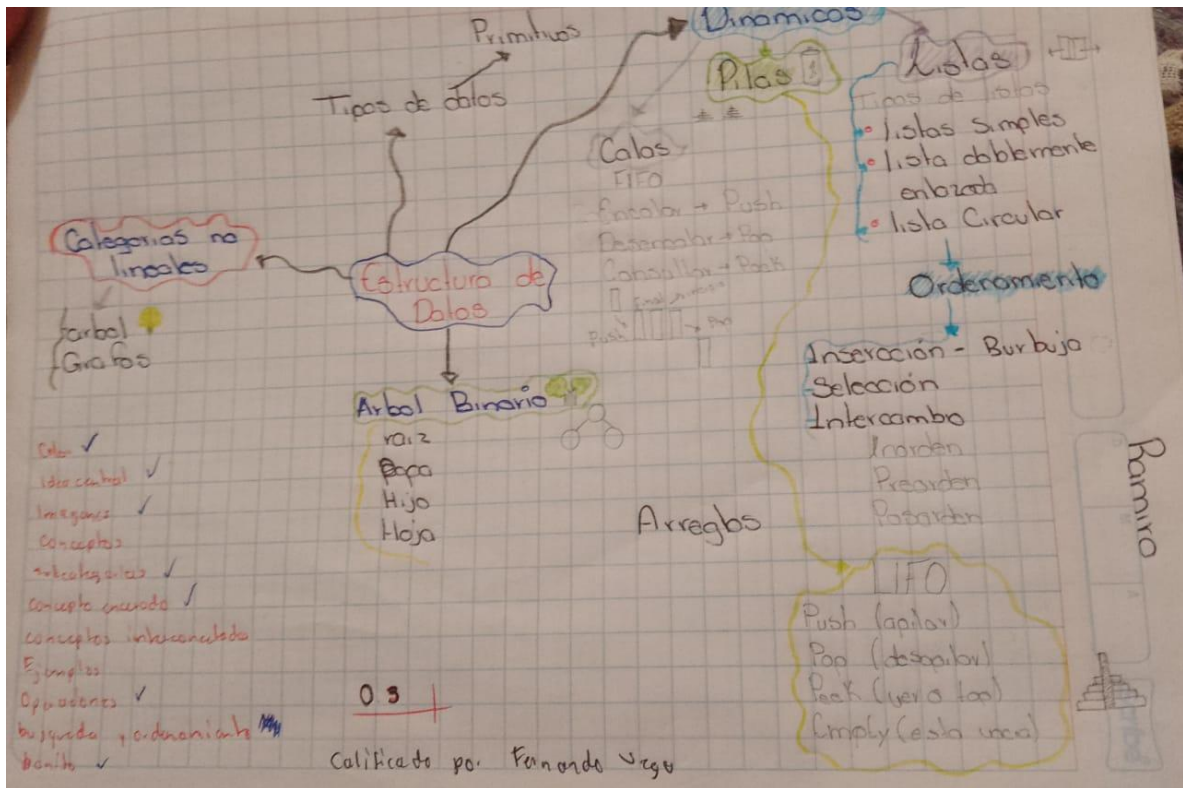 Primitivos
Tipos de datos
Dinamicos
Pilas
Listas
Tipos de listas
listas simples
lista doblemente
enlazada
lista Circular
Ordenamiento
Inseroción - Burbuja
Selección
Intercambo
Inorden
Preorden
Posorden
Colas
FIFO
Encolar → Push
Desencolar → Pop
Consultar → Peek
Push
Pop
Categorias no
lineales
arbol
Grafos
Estructura de
Datos
Arbol Binario
raiz
Papa
Hijo
Hoja
Arreglos
LIFO
Push (apilar)
Pop (desapilar)
Peek (ver o top)
Empty (esta vacia)
Ramiro
Color ✓
idea central ✓
Imagenes ✓
conceptos
subcategorias ✓
concepto encerrado ✓
conceptos interconectados
Ejemplos
Operadores ✓
busqueda y ordenamiento
bonito ✓
0.9
Calificado por. Fernando Vega